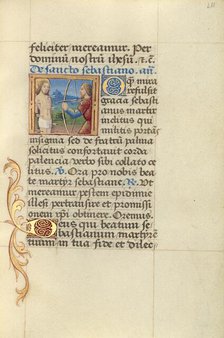 feliciter mereamur. Per
dominũ nostrũ ihesũ. ⁊c̃.
De sancto sebastiano. añ.
O q̃ mira
refulsit
gracia sebasti
anus martyr
inclitus qui
militis portãs
insignia sed de fratrũ palma
solicitus confortauit corda
palencia verbo sibi collato ce
litus. V. Ora pro nobis bea
te martyr sebastiane. R. Ut
mereamur pestem epidimie
illesi pertransire et promissi
onem xp̃i obtinere. Oremus.
Deus qui beatum se
bastianum martyrẽ
tuum in tua fide et dilec